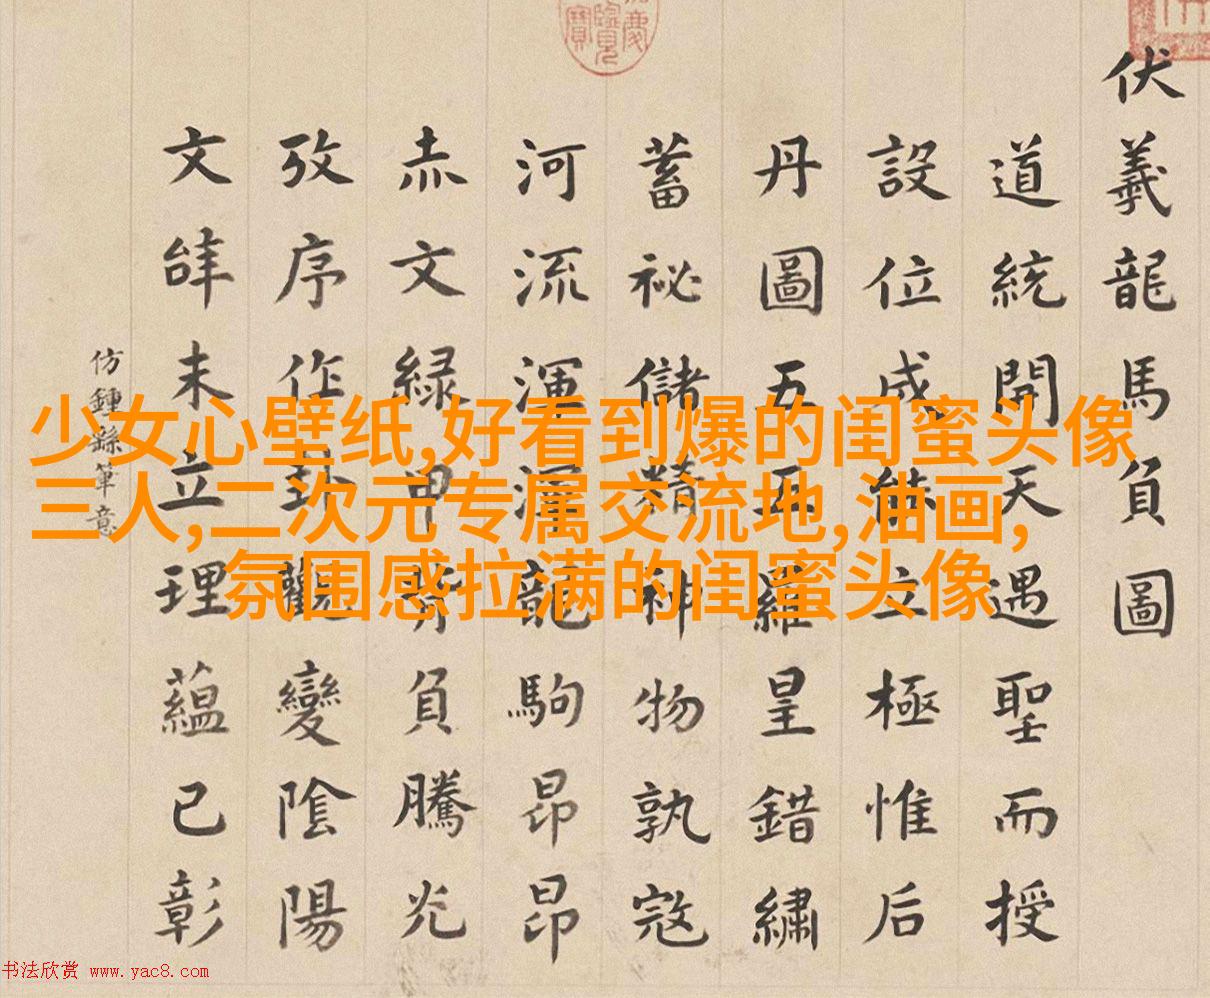 伏羲龍馬負圖
道統開天遇聖而授
設位成能立極惟后
丹圖五五羅星錯繡
蓄祕儲精神物孰寇
河流渾渾龍駒昂昂
赤文緑甲背負騰光
攷序作卦觀變陰陽
文未立理蘊已彰
仿鍾繇筆意
少女心壁纸,好看到爆的闺蜜头像
三人,二次元专属交流地,油画,
氛围感拉满的闺蜜头像
书法欣赏 www.yac8.com